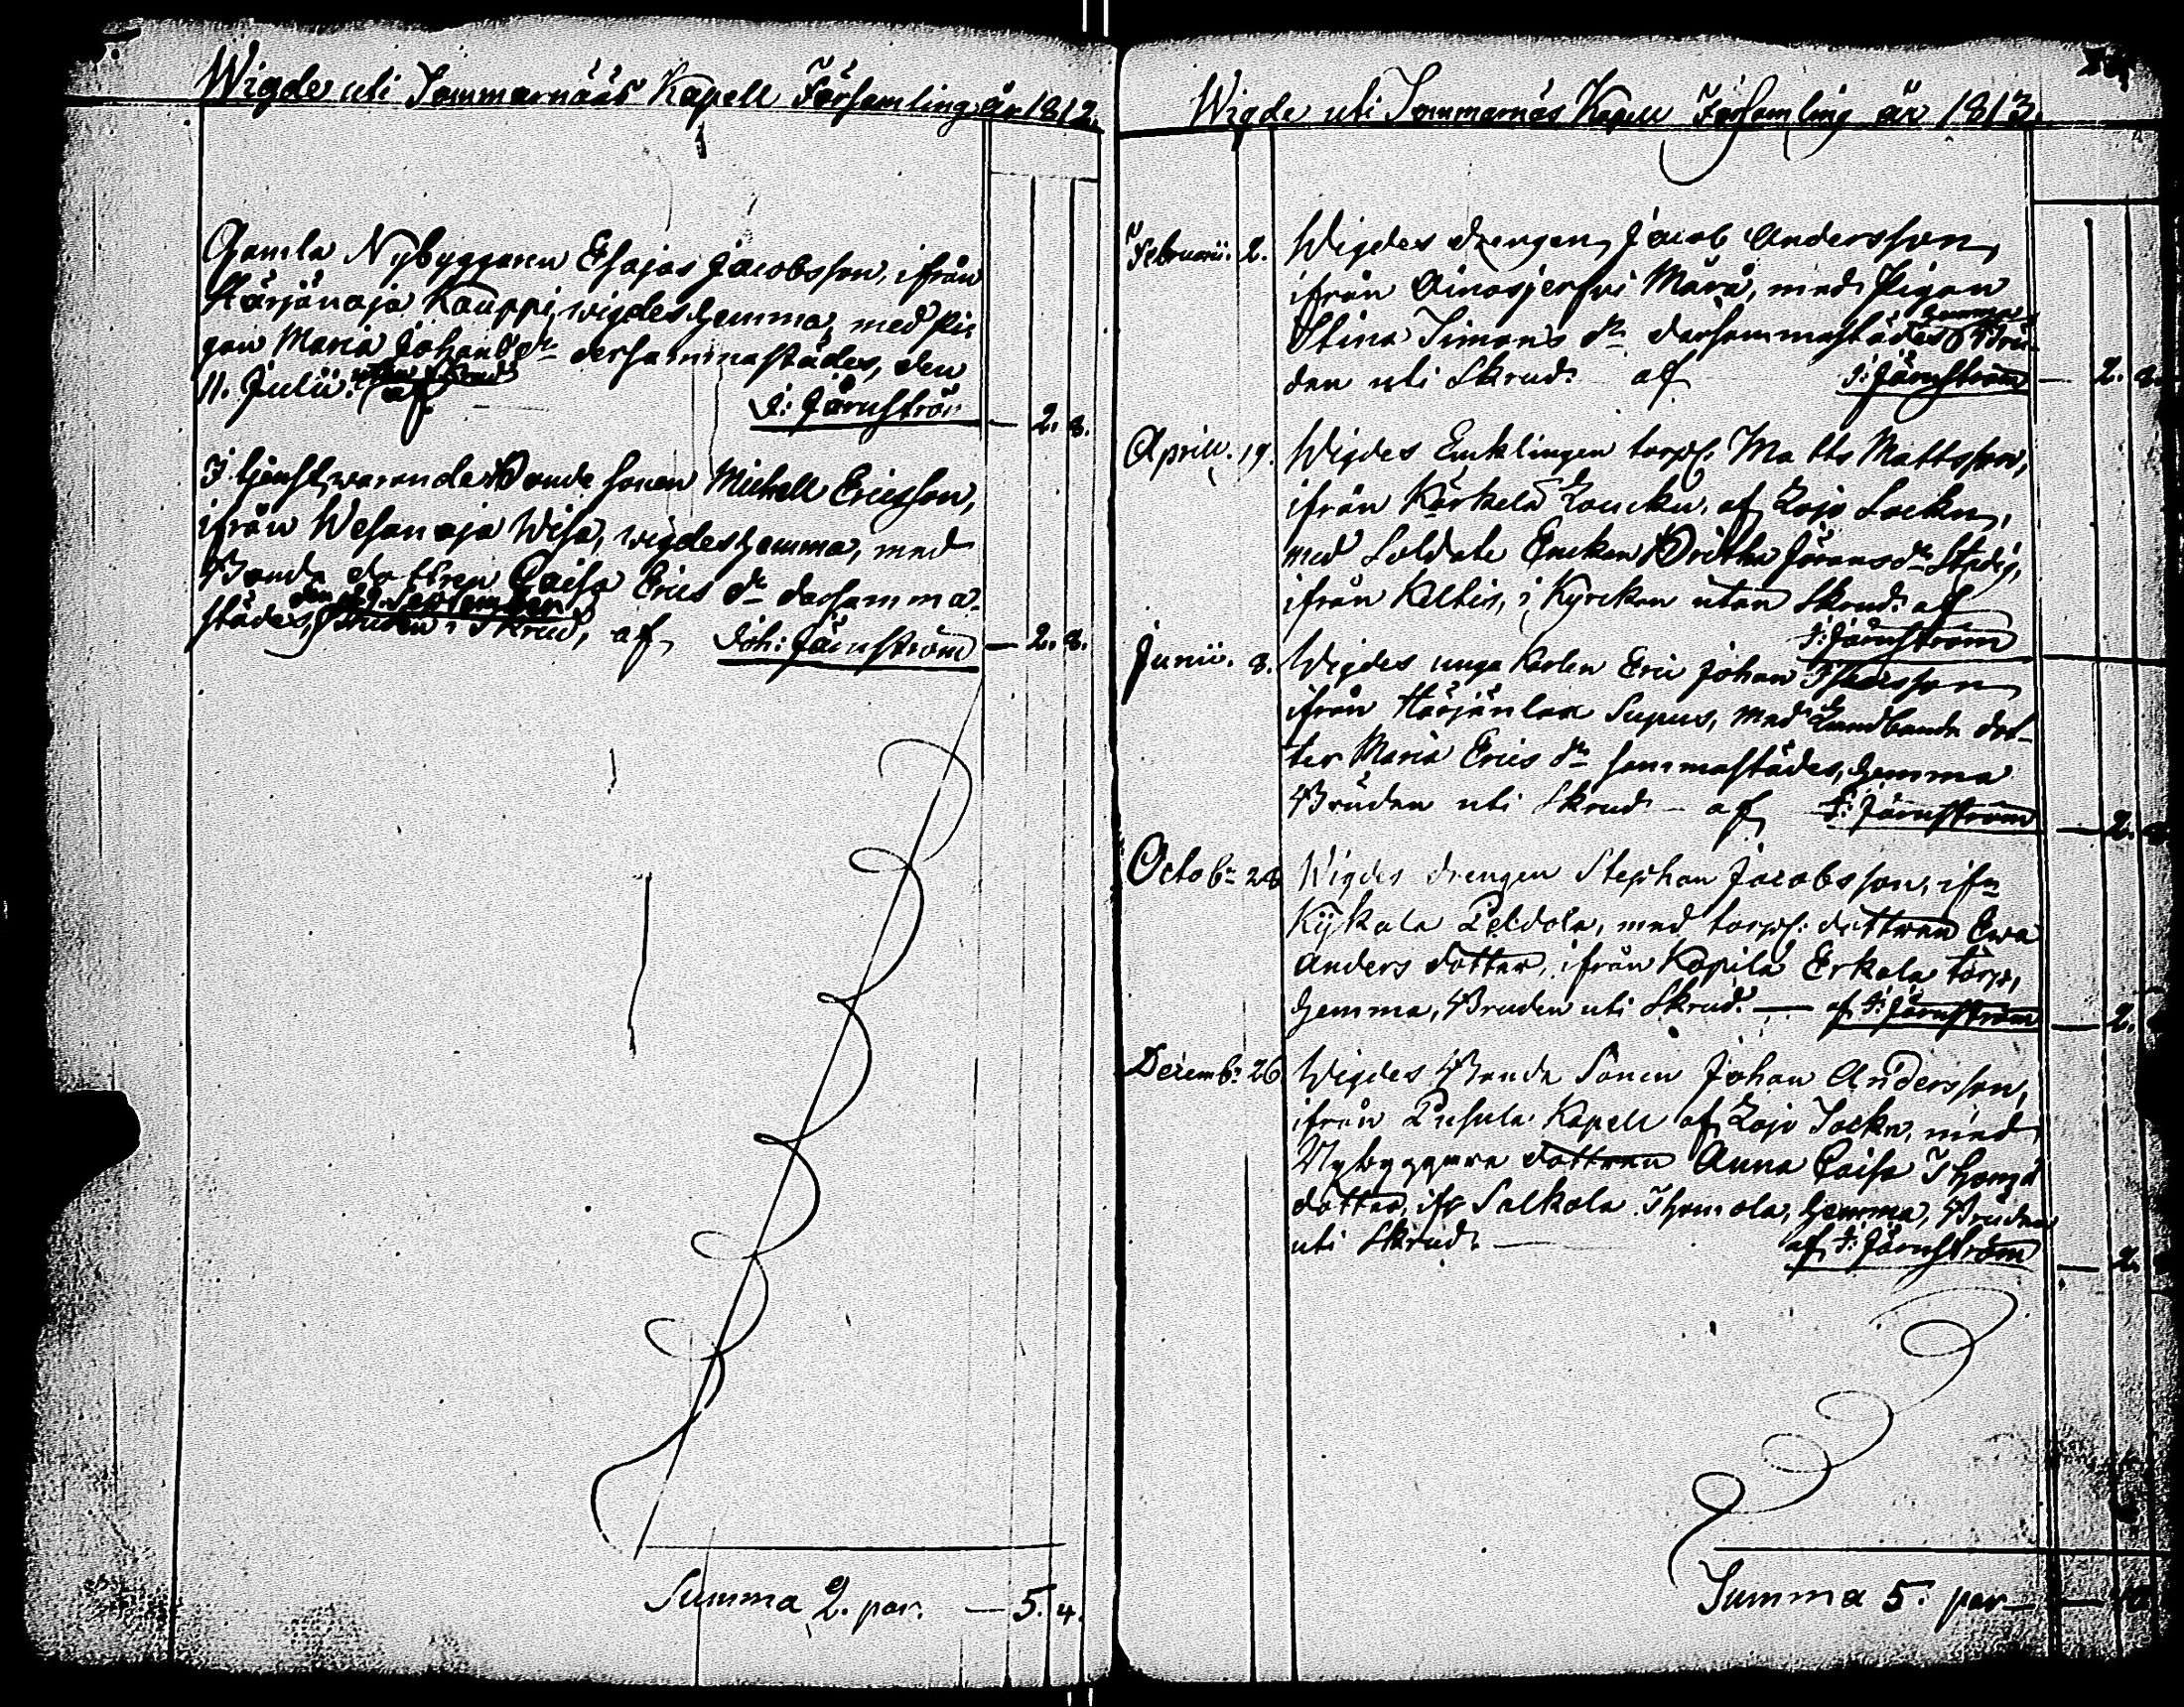 Wigde uti Sommarnääs Kapell Församling år 1812.
Gamla Nybyggaren Esajas Jacobsson, ifrån
Härjänoja Kauppi, wigdes hemma, med Pi-
gan Maria Johans dr dersammastädes, den
11. Julii. utan Skrud af J: Järnström — 2. 8.
I tjenst warande Bonde sonen Michell Ericsson,
ifrån Wesanoja Wisa, wigdes hemma, med
Bonde dottren Caisa Erics dr dersamma-
den 29 September
städes, Bruden i Skrud, af Joh: Järnström — 2. 8.
Summa 2. par. — 5. 4.
Wigde uti Sommarnäs Kapell Församling år 1813.
Februarii. 2. Wigdes drengen Jacob Andersson,
ifrån Ainasjerfwi Marä, med Pigan
Stina Simons dr dersammastädes hemma Bru-
den uti Skrud. af J: Järnström — 2. 8.
Aprill. 19. Wigdes Encklingen torp. Matts Mattsson,
ifrån Kärkelä Loucku, af Lojo Sockn,
med Soldate Enckan Britha Jörans dr Stadig,
ifrån Keltis, i Kyrckan utan Skrud. af
J: Järnström
Junii. 8. Wigdes unga Karlen Eric Johan
ifrån Härjänlaa Supus, med Landbonde dot-
ter Maria Erics dr sammastädes, hemma
Bruden uti Skrud — af J: Järnström — 2. 8.
Octobr 28 Wigdes drengen Stephan Jacobsson, ifrn
Kykala Peldola, med torp: dottren Ewa
Anders dotter, ifrån Kopila Erkola torp,
hemma, Bruden uti Skrud. — af J: Järnström — 2.
Decembr 26 Wigdes Bonde Sonen Johan Andersson,
ifrån Pusula Kapell af Lojo Sockn, med
Nybyggare dottren Anna Caisa Thomæ
dotter, ifr Salkola Thomola, hemma, Bruden
uti Skrud. — af J: Järnström — 2.
Summa 5. par —